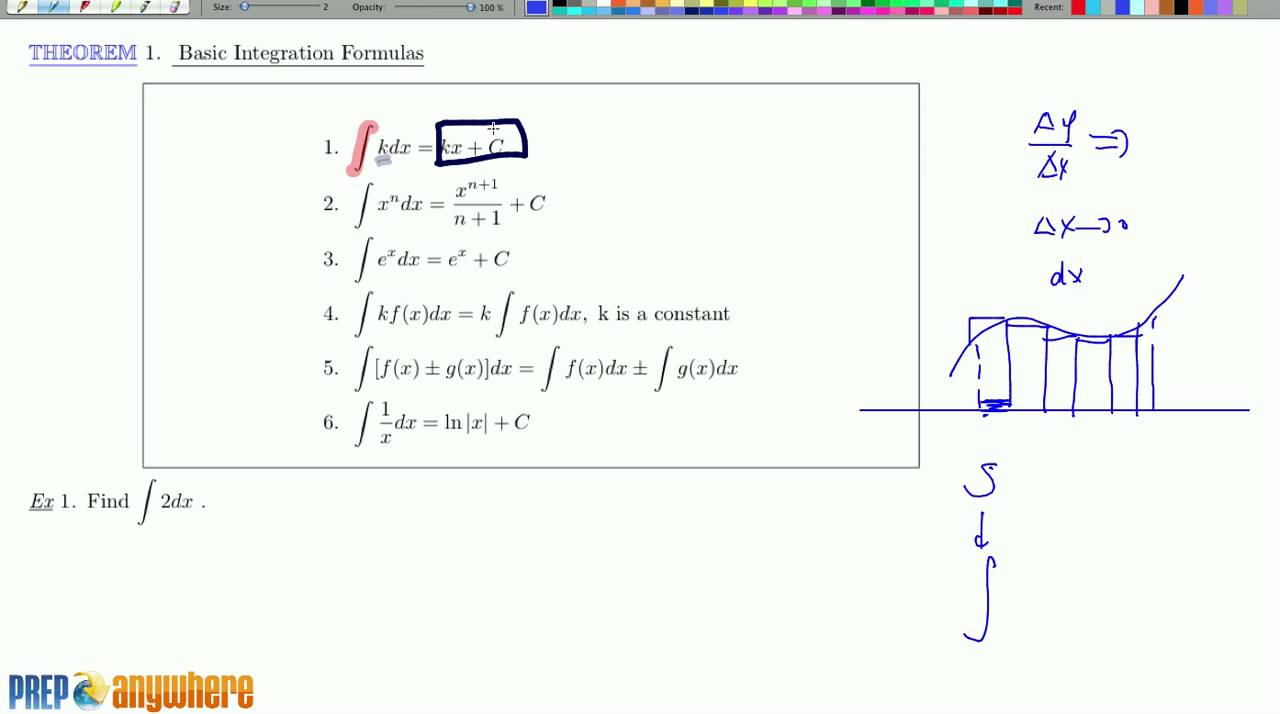 Size: 2 Opacity: 100 % Recent:
THEOREM 1. Basic Integration Formulas
1. ∫ kdx = kx + C
2. ∫ xⁿdx = xⁿ⁺¹/(n + 1) + C
3. ∫ eˣdx = eˣ + C
4. ∫ kf(x)dx = k ∫ f(x)dx, k is a constant
5. ∫ [f(x) ± g(x)]dx = ∫ f(x)dx ± ∫ g(x)dx
6. ∫ 1/x dx = ln |x| + C
Ex 1. Find ∫ 2dx .
Δy/Δx ⇒
Δx→0
dx
S
↓
∫
PREP anywhere